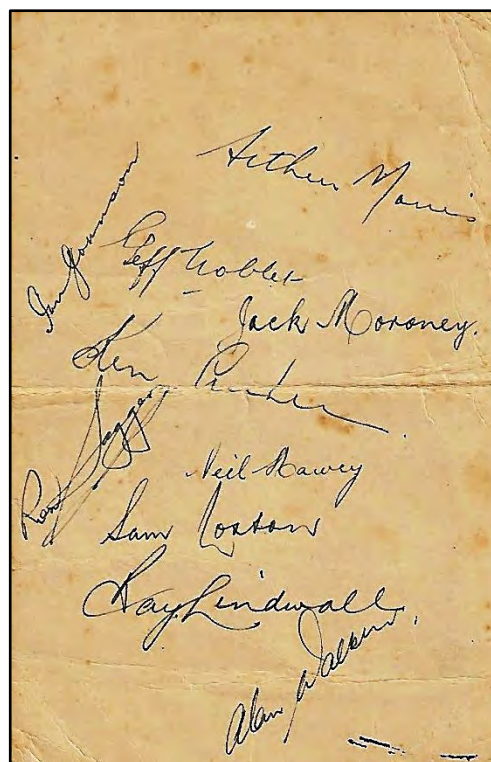 Arthur Morris
Ian Johnson
Geff Noblet
Jack Moroney.
Ken
Ron Saggers
Neil Harvey
Sam Loxton
Ray Lindwall
Alan Walker.